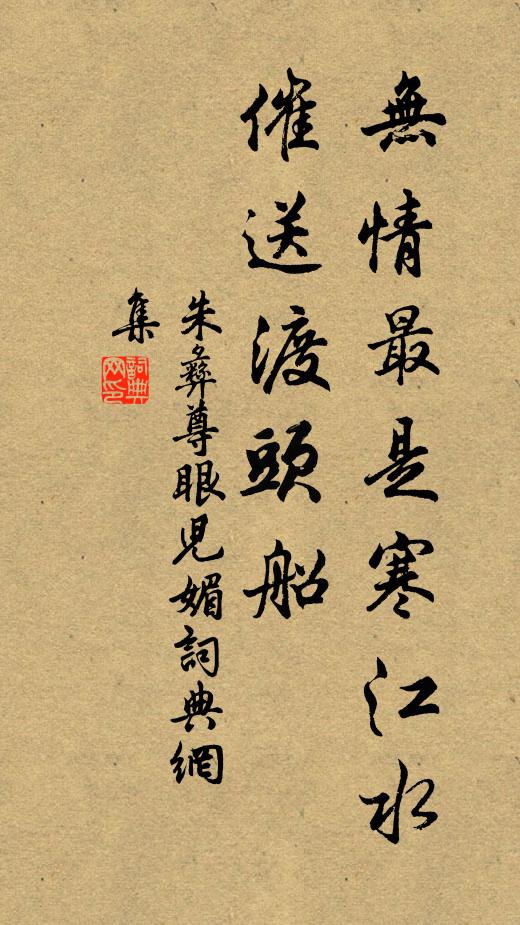 無情最是寒江水
催送渡頭船
朱彝尊眼兒媚詞典網
集
詞典網印